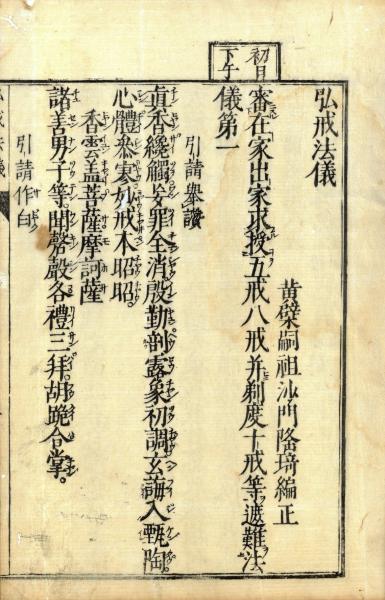 初日
下午
弘戒法儀
黄檗嗣祖沙門隆琦編正
審在家出家求授五戒八戒并剃度十戒等遮難法
儀第一
引請舉讚
真香纔爇罪全消殷勤剖露象初調玄誨入甄陶
心體叅寒妙戒本昭昭
香雲盖菩薩摩訶薩
引請作白
諸善男子等聞磬聲各禮三拜胡跪合掌